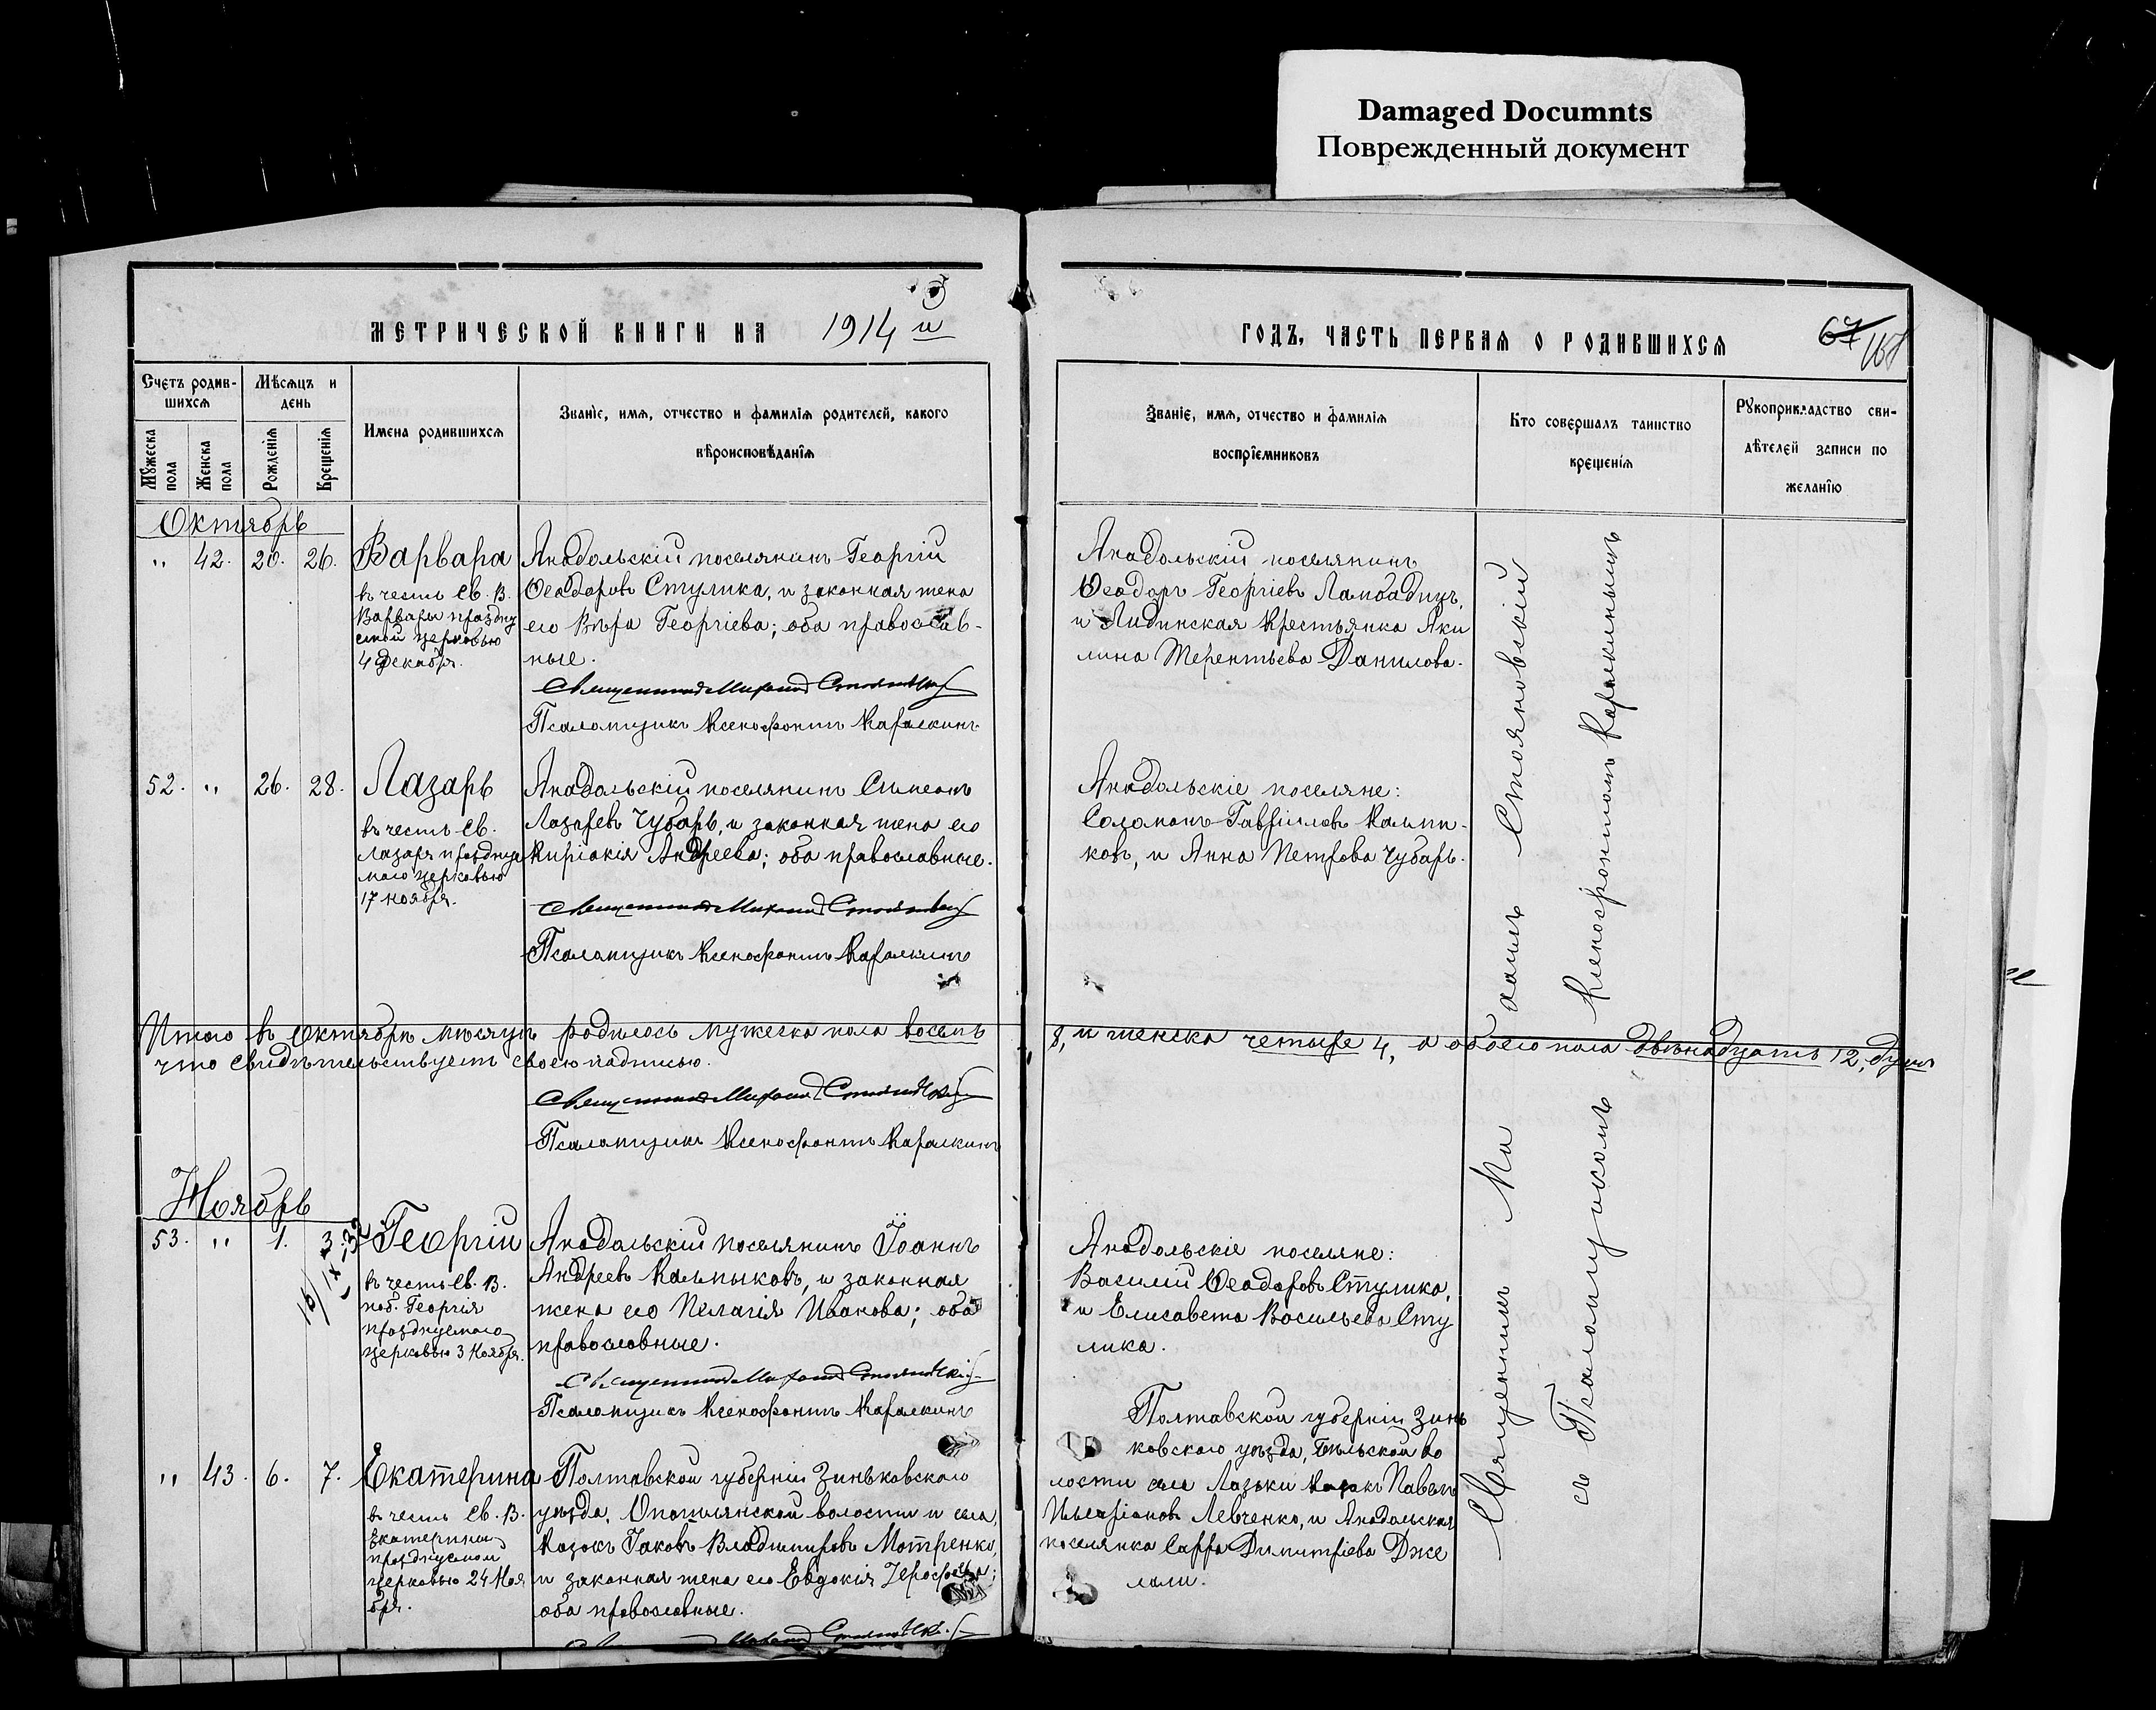 Damaged Documnts
Поврежденный документ
МЕТРИЧЕСКОЙ КНИГИ НА 1914 й
ГОДЪ, ЧАСТЬ ПЕРВАЯ О РОДИВШИХСЯ
67
Счетъ родив-
шихся
Мужеска
пола
Женска
пола
Мѣсяцъ и
день
Рожденія
Крещенія
Имена родившихся
Званіе, имя, отчество и фамилія родителей, какого
вѣроисповѣданія
Званіе, имя, отчество и фамилія
воспріемниковъ
Кто совершалъ таинство
крещенія
Рукоприкладство сви-
дѣтелей записи по
желанію
Октябрь
" 42. 20. 26.
Варвара
въ честь Св. В.
Варвары праздну
емой церковью
4 декабря.
Анадольскій поселянинъ Георгій
Ѳеодоровъ Стулика, и законная жена
его Вѣра Георгіева; оба православ-
ные.
Священникъ Михаилъ Стояновскій
Псаломщикъ Ксенофонтъ Каракинъ
Анадольскій поселянинъ
Ѳеодоръ Георгіевъ
и крестьянка Аки
лина Терентьева Данилова.
52. " 26. 28.
Лазарь
въ честь Св.
Лазаря праздну
маго церковью
17 ноября.
Анадольскій поселянинъ Симеонъ
Лазаревъ Чубарь, и законная жена его
Киріакія Андреева; оба православные.
Священникъ Михаилъ Стояновскій
Псаломщикъ Ксенофонтъ Каракинъ
Анадольскіе поселяне:
Соломонъ Гавріиловъ Калмы-
ковъ, и Анна Петрова Чубарь.
Итого въ Октябрѣ мѣсяцѣ родилось мужеска пола восемь 8, и женска четыре 4, а обоего пола двѣнадцать 12, душъ
что свидѣтельствуемъ своею надписью.
Священникъ Михаилъ Стояновскій
Псаломщикъ Ксенофонтъ Каракинъ
Ноябрь
53. " 1. 3
Георгій
въ честь Св. В.
поб. Георгія
празднуемаго
церковью 3 Ноября.
Анадольскій поселянинъ Іоаннъ
Андреевъ Калмыковъ, и законная
жена его Пелагія Иванова; оба
православные.
Священникъ Михаилъ Стояновскій
Псаломщикъ Ксенофонтъ Каракинъ
Анадольскіе поселяне:
Василій Ѳеодоровъ Стулика,
и Елисавета Васильева Сту
лика.
" 43. 6. 7.
Екатерина
въ честь Св. В.
Екатерины
празднуемой
церковью 24 Ноя
бря.
Полтавской губерніи Зиньковскаго
уѣзда, Опошлянской волости и села,
Казакъ Іаковъ Владиміровъ Мотренко,
и законная жена его Евдокія
оба православные.
Полтавской губерніи Зинь
ковскаго уѣзда, Бѣльской во
лости села Лазьки Казакъ Павелъ
Иларіоновъ Левченко, и Анадольская
поселянка Сарра Димитріева Дже
лали.
Священникъ Михаилъ Стояновскій
съ Псаломщикомъ Ксенофонтомъ Каракинымъ